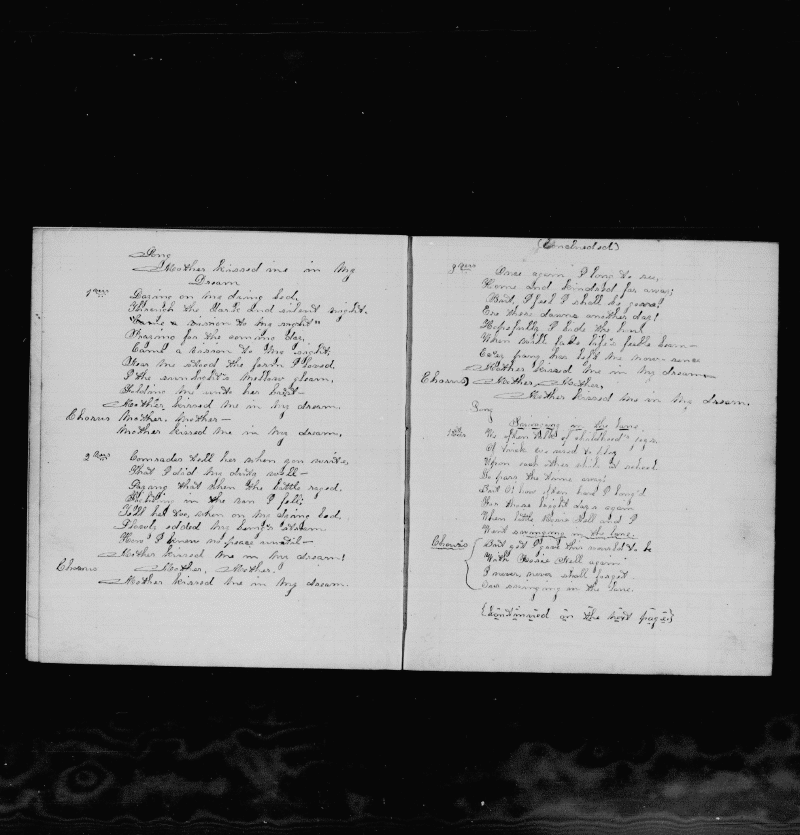 Song
Mother kissed me in my
Dream
1st Vers
on my dying bed,
Through the dark and silent night.
"Came a vision to my sight"
Praying for the coming day,
Came a vision to my sight;
Near me stood the form I loved,
I the sunlight's mellow gleam,
Folding me unto her
Mother kissed me in my dream.
Chorus Mother, Mother—
Mother kissed me in my dream,
2 Vers
Comrades tell her when you write,
That I did my duty well—
that when the battle raged.
in the van I fell;
Tell her too, when on my dying bed,
Slowly ebbed my being's stream
How I knew no peace until—
Mother kissed me in my dream!
Chorus Mother, Mother,
Mother kissed me in my dream.
(Concluded)
3 Vers
Once again I long to see,
Home and kindred far away;
But, I feel I shall be gone!
Ere there dawns another day!
Hopefully I bide the hour
When will fade life's feeble beam—
Every pang has left me now since
Mother kissed me in my dream—
Chorus) Mother, Mother,
Mother kissed me in my dream.
Song
Swinging in the lane.
1st Vers
We often talk of childhood's joys,
Of tricks we used to play
Upon each other while at school
To pass the time away;
But O! how often have I long'd
For those bright days again
When little Rosie Nell and I
Went swinging in the lane.
Chorus
But yet I'd give this world to be
With Rosie Nell again
I never, never shall forget
Our swinging in the lane.
{Continued on the next page}